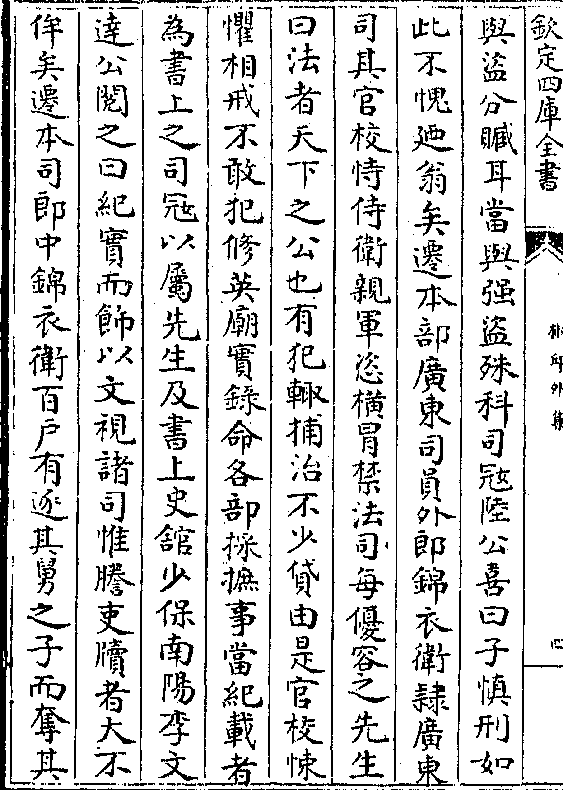 欽定四庫全書
椒邱外集
四
與盜分贓耳當與强盜殊科司寇陸公喜曰子慎刑如
此不愧廼翁矣遷本部廣東司員外郎錦衣衛隸廣東
司其官校恃侍衛親軍恣橫冒禁法司每優容之先生
曰法者天下之公也有犯輙捕治不少貸由是官校悚
懼相戒不敢犯修英廟實錄命各部採摭事當紀載者
為書上之司冦以屬先生及書上史舘少保南陽李文
達公閱之曰紀實而飾以文視諸司惟謄吏牘者大不
侔矣遷本司郎中錦衣衛百戶有逐其舅之子而奪其